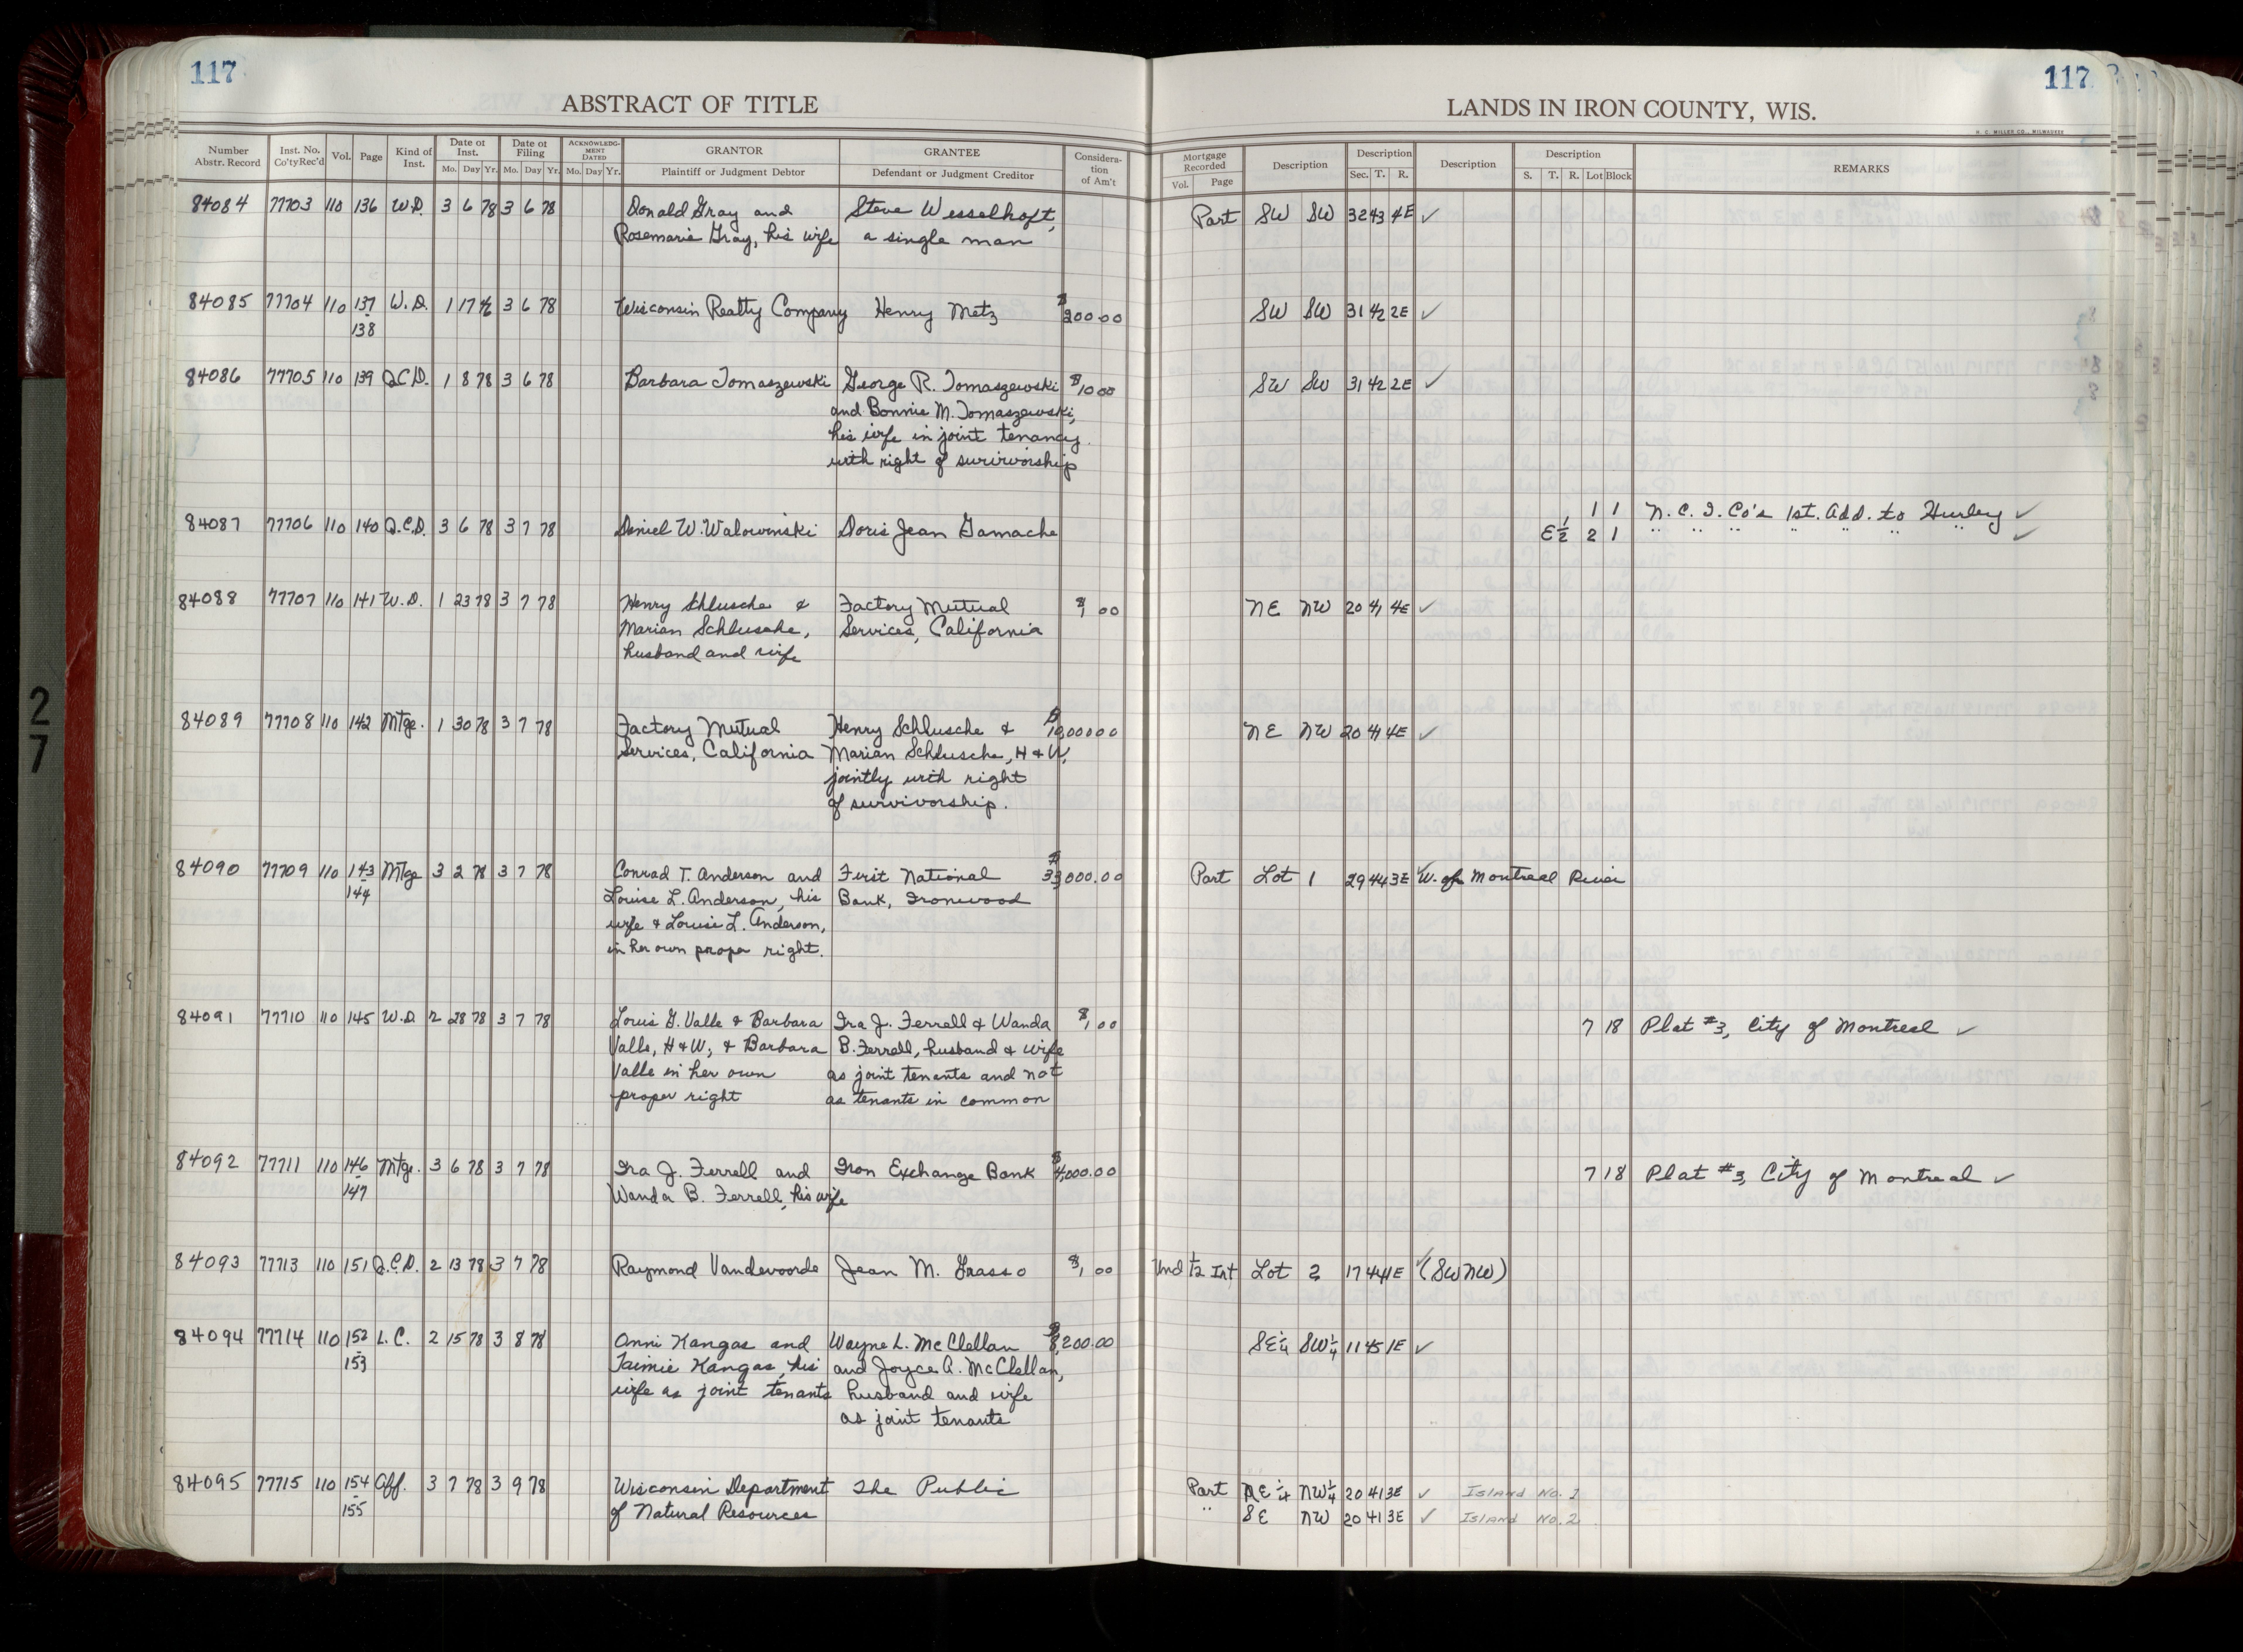 117
ABSTRACT OF TITLE
Number Abstr. Record
Inst. No. Co'ty Rec'd
Vol.
Page
Kind of Inst.
Date of Inst.
Mo. Day Yr.
Date of Filing
Mo. Day Yr.
ACKNOWLEDGMENT DATED
Mo. Day Yr.
GRANTOR
Plaintiff or Judgment Debtor
GRANTEE
Defendant or Judgment Creditor
Consideration of Am't
117
LANDS IN IRON COUNTY, WIS.
H. C. MILLER CO., MILWAUKEE
Mortgage Recorded
Vol. Page
Description
Description
Sec. T. R.
Description
Description
S. T. R. Lot Block
REMARKS
84084 77703 110 136 W.D. 3 6 78 3 6 78 Donald Gray and Steve Wesselhoft, Part SW SW 32 43 4E ✓
Rosemarie Gray, his wife a single man
84085 77704 110 137 W.D. 1 17 46 3 6 78 Wisconsin Realty Company Henry Metz $200.00 SW SW 31 42 2E ✓
138
84086 77705 110 139 Q.C.D. 1 8 78 3 6 78 Barbara Tomaszewski George R. Tomaszewski $10 00 SW SW 31 42 2E ✓
and Bonnie M. Tomaszewski,
his wife in joint tenancy
with right of survivorship
1 1 N.C.I. Co's 1st. Add. to Hurley ✓
84087 77706 110 140 Q.C.D. 3 6 78 3 7 78 Daniel W. Walowinski Doris Jean Gamache E½ 2 1 " " " " " " " ✓
84088 77707 110 141 W.D. 1 23 78 3 7 78 Henry Schlusche & Factory Mutual $1 00 NE NW 20 41 4E ✓
Marian Schlusche, Services, California
husband and wife
84089 77708 110 142 Mtge. 1 30 78 3 7 78 Factory Mutual Henry Schlusche & $10,000.00 NE NW 20 41 4E ✓
Services, California Marian Schlusche, H & W,
jointly with right
of survivorship.
84090 77709 110 143 Mtge 3 2 78 3 7 78 Conrad T. Anderson and First National $33,000.00 Part Lot 1 29 44 3E W. of Montreal River
144 Louise L. Anderson, his Bank, Ironwood
wife & Louise L. Anderson,
in her own proper right.
84091 77710 110 145 W.D. 2 28 78 3 7 78 Louis G. Valle & Barbara Ira J. Ferrell & Wanda $1,00 7 18 Plat #3, City of Montreal ✓
Valle, H & W, & Barbara B. Ferrell, husband & wife
Valle in her own as joint tenants and not
proper right as tenants in common
84092 77711 110 146 Mtge. 3 6 78 3 7 78 Ira J. Ferrell and Iron Exchange Bank $4,000.00 7 18 Plat #3, City of Montreal ✓
147 Wanda B. Ferrell, his wife
84093 77713 110 151 Q.C.D. 2 13 78 3 7 78 Raymond Vandevoorde Jean M. Grasso $1,00 Und ½ Int Lot 2 17 44 1E ✓ (SW NW)
84094 77714 110 152 L.C. 2 15 78 3 8 78 Onni Kangas and Wayne L. McClellan $8,200.00 SE¼ SW¼ 11 45 1E ✓
153 Taimie Kangas, his and Joyce A. McClellan,
wife as joint tenants husband and wife
as joint tenants
84095 77715 110 154 Aff. 3 7 78 3 9 78 Wisconsin Department The Public Part NE¼ NW¼ 20 41 3E ✓ Island No. 1
155 of Natural Resources " SE NW 20 41 3E ✓ Island No. 2
27